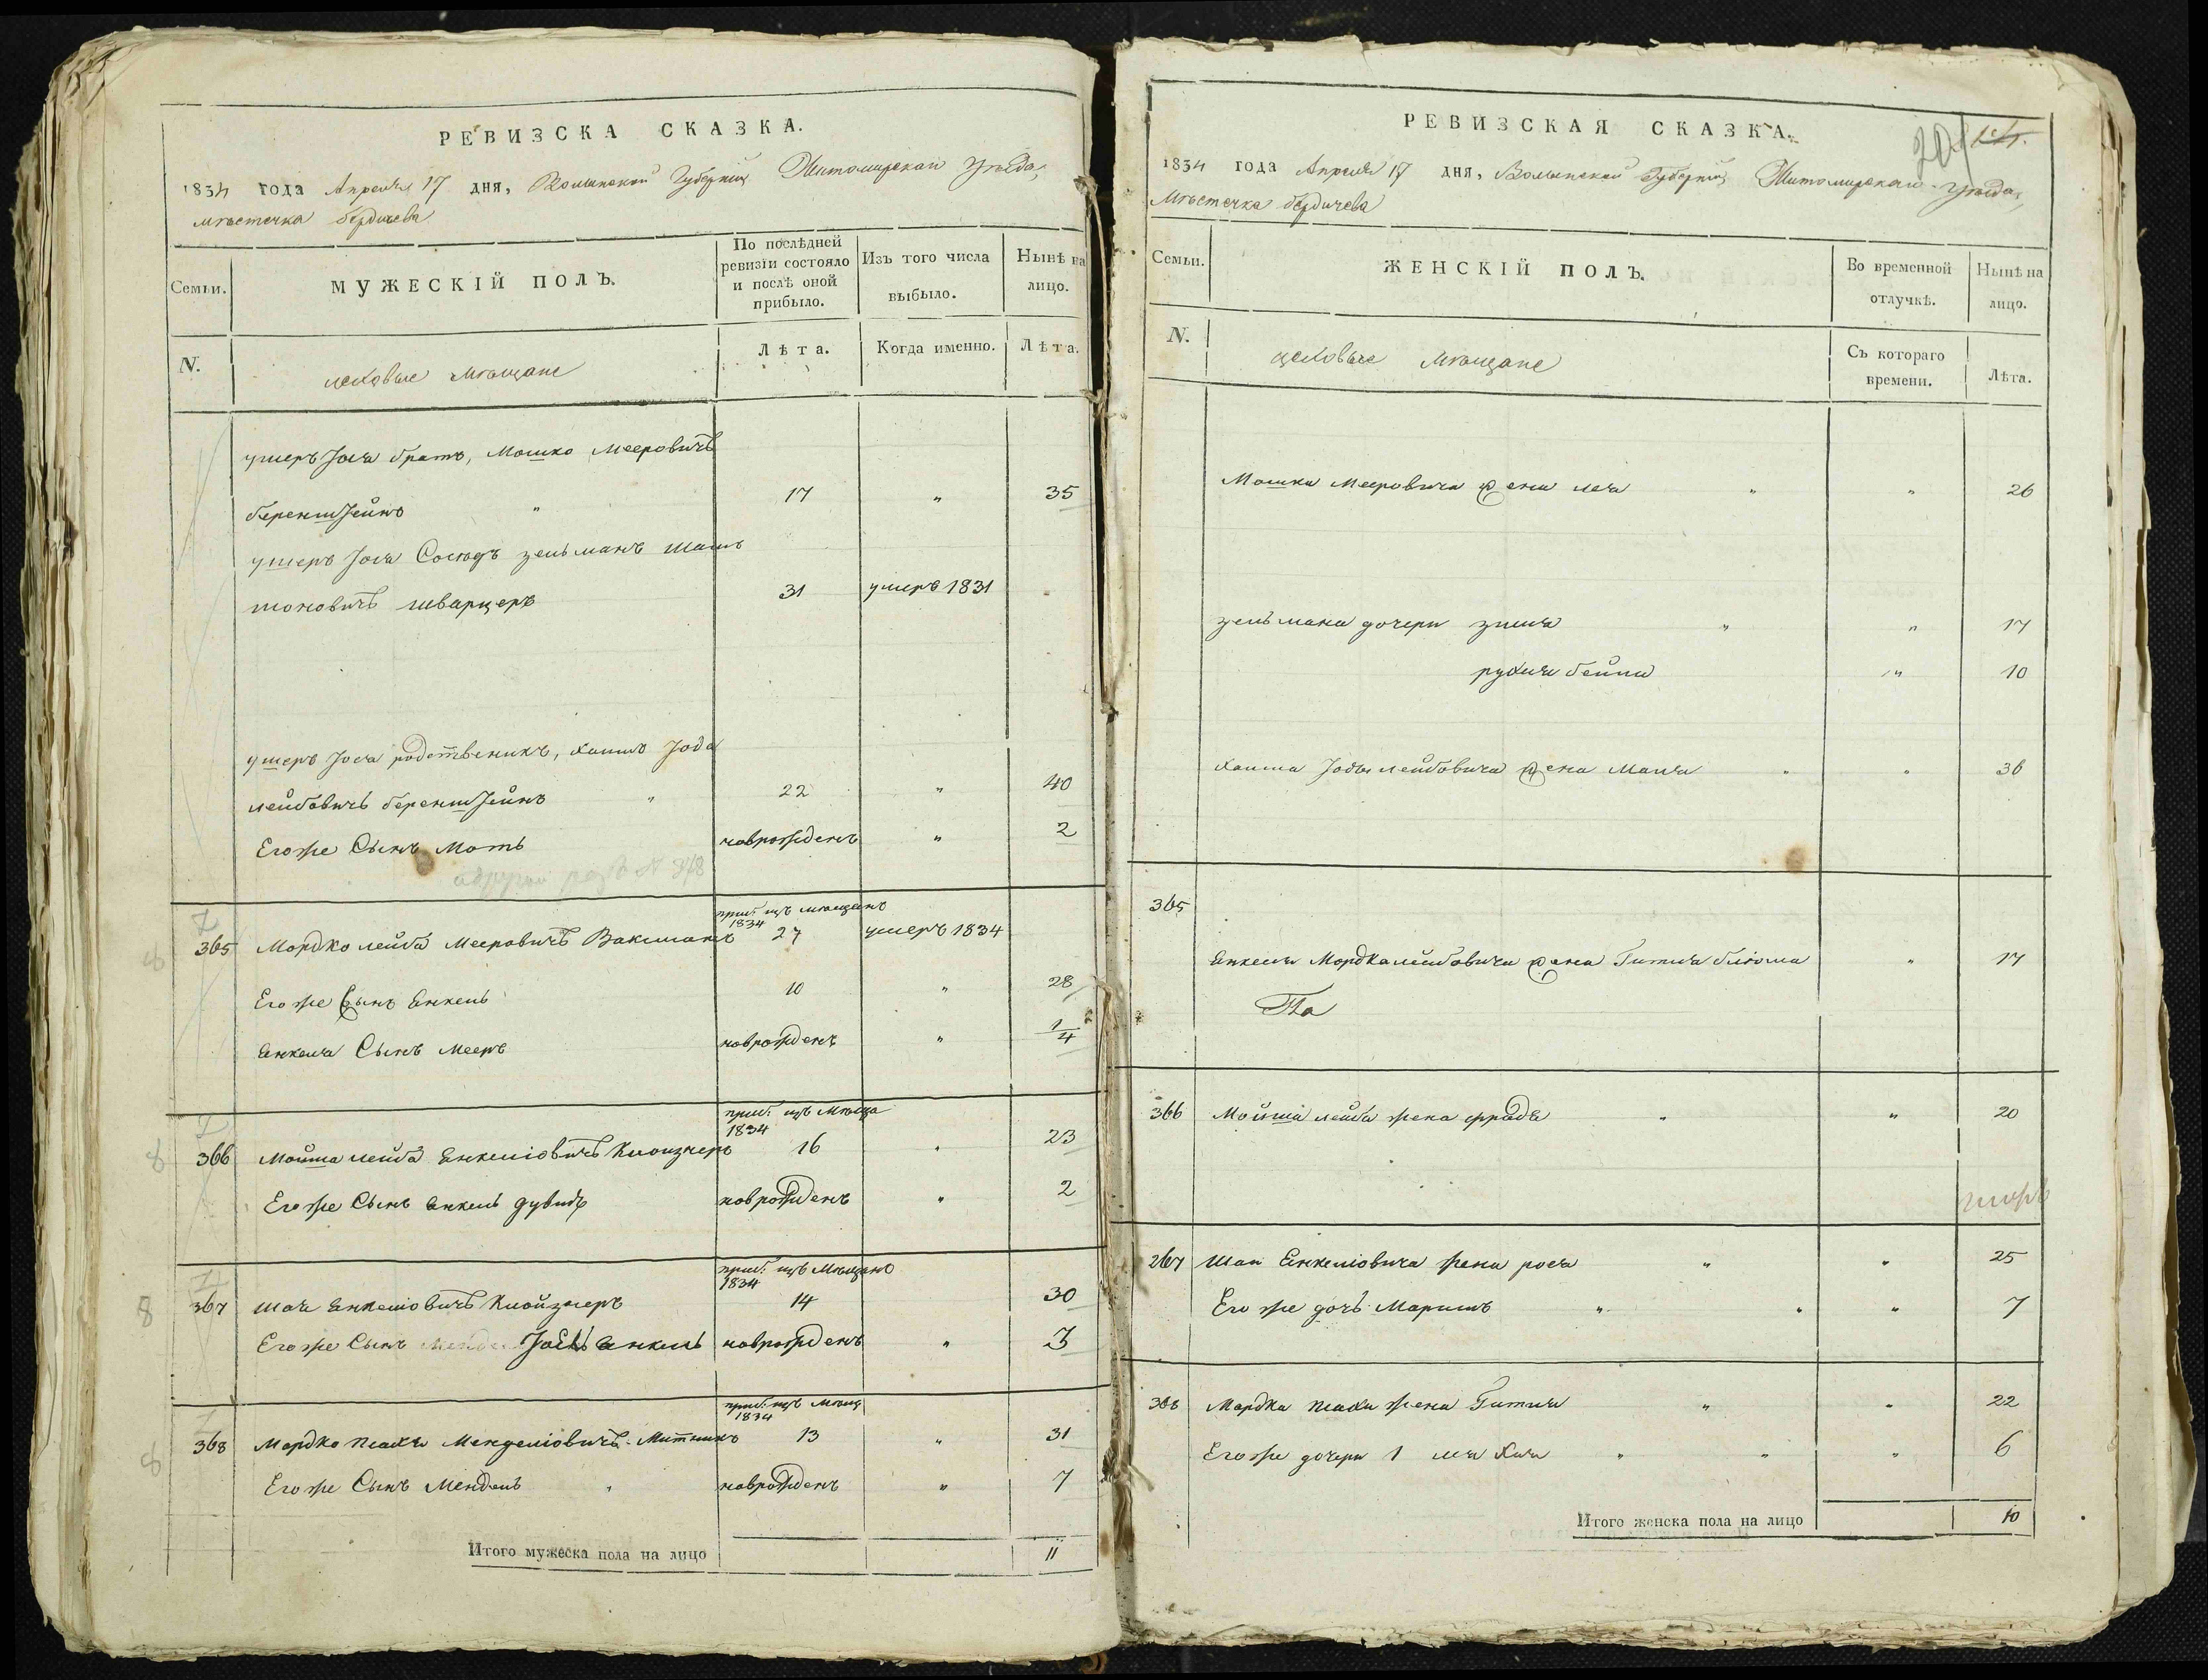 РЕВИЗСКА СКАЗКА.
1834 года Апреля 17 дня, Волынской Губернии Житомирскаго уѣзда,
мѣстечка бердичева
Семьи.
МУЖЕСКІЙ ПОЛЪ.
По послѣдней ревизіи состояло и послѣ оной прибыло.
Изъ того числа выбыло.
Нынѣ на лицо.
N.
цеховые мѣщане
Лѣта.
Когда именно.
Лѣта.
умеръ Іося братъ, Мошко Мееровичъ
беренштейнъ " 17 " 35
умеръ Іося Сосѣдъ зельманъ
моновичъ шварцеръ 31 умеръ 1831
умеръ Іося родственикъ, хаимъ Іода
лейбовичъ беренштейнъ " 22 " 40
Егоже Сынъ Моть наврожденъ " 2
приб. изъ мѣщанъ
1834
365 Мордко лейба Мееровичъ Ваксманъ 27 умеръ 1834
Егоже Сынъ Янкель 10 " 28
Янкеля Сынъ Мееръ наврожденъ " 1/4
приб. изъ Мѣща
1834
366 Мойша лейба Янкеліовичъ Клоизнеръ 16 " 23
Егоже Сынъ Янкель дувидъ наврожденъ " 2
приб. изъ Мѣщанъ
1834
367 Шая Янкеліовичъ Клойзнеръ 14 30
Егоже Сынъ Іось Янкель наврожденъ " 3
приб. изъ Мѣщ
1834
368 Мордко Пейсахъ Менделіовичъ Митникъ 13 " 31
Егоже Сынъ Мендель " наврожденъ " 7
Итого мужеска пола на лицо 11
РЕВИЗСКАЯ СКАЗКА.
201
1834 года Апреля 17 дня, Волынской Губерніи Житомирскаго уѣзда,
Мѣстечка бердичева
Семьи.
ЖЕНСКІЙ ПОЛЪ.
Во временной отлучкѣ.
Нынѣ на лицо.
N.
цеховые мѣщане
Съ котораго времени.
Лѣта.
Мошки Мееровича жена лея " " 26
зельмана дочери зися " " 17
рухля бейла " 10
хаима Іоды лейбовича жена Маля " " 36
365
Янкеля Мордка лейбовича жена Гитля блюма " 17
366 Мойша лейба жена фрада " " 20
267 Шаи Енкеліовича жена рося " " 25
Егоже дочь Маримъ " " " 7
368 Мордка жена Гитля " " 22
Егоже дочери 1 лея хая " " " 6
Итого женска пола на лицо 10